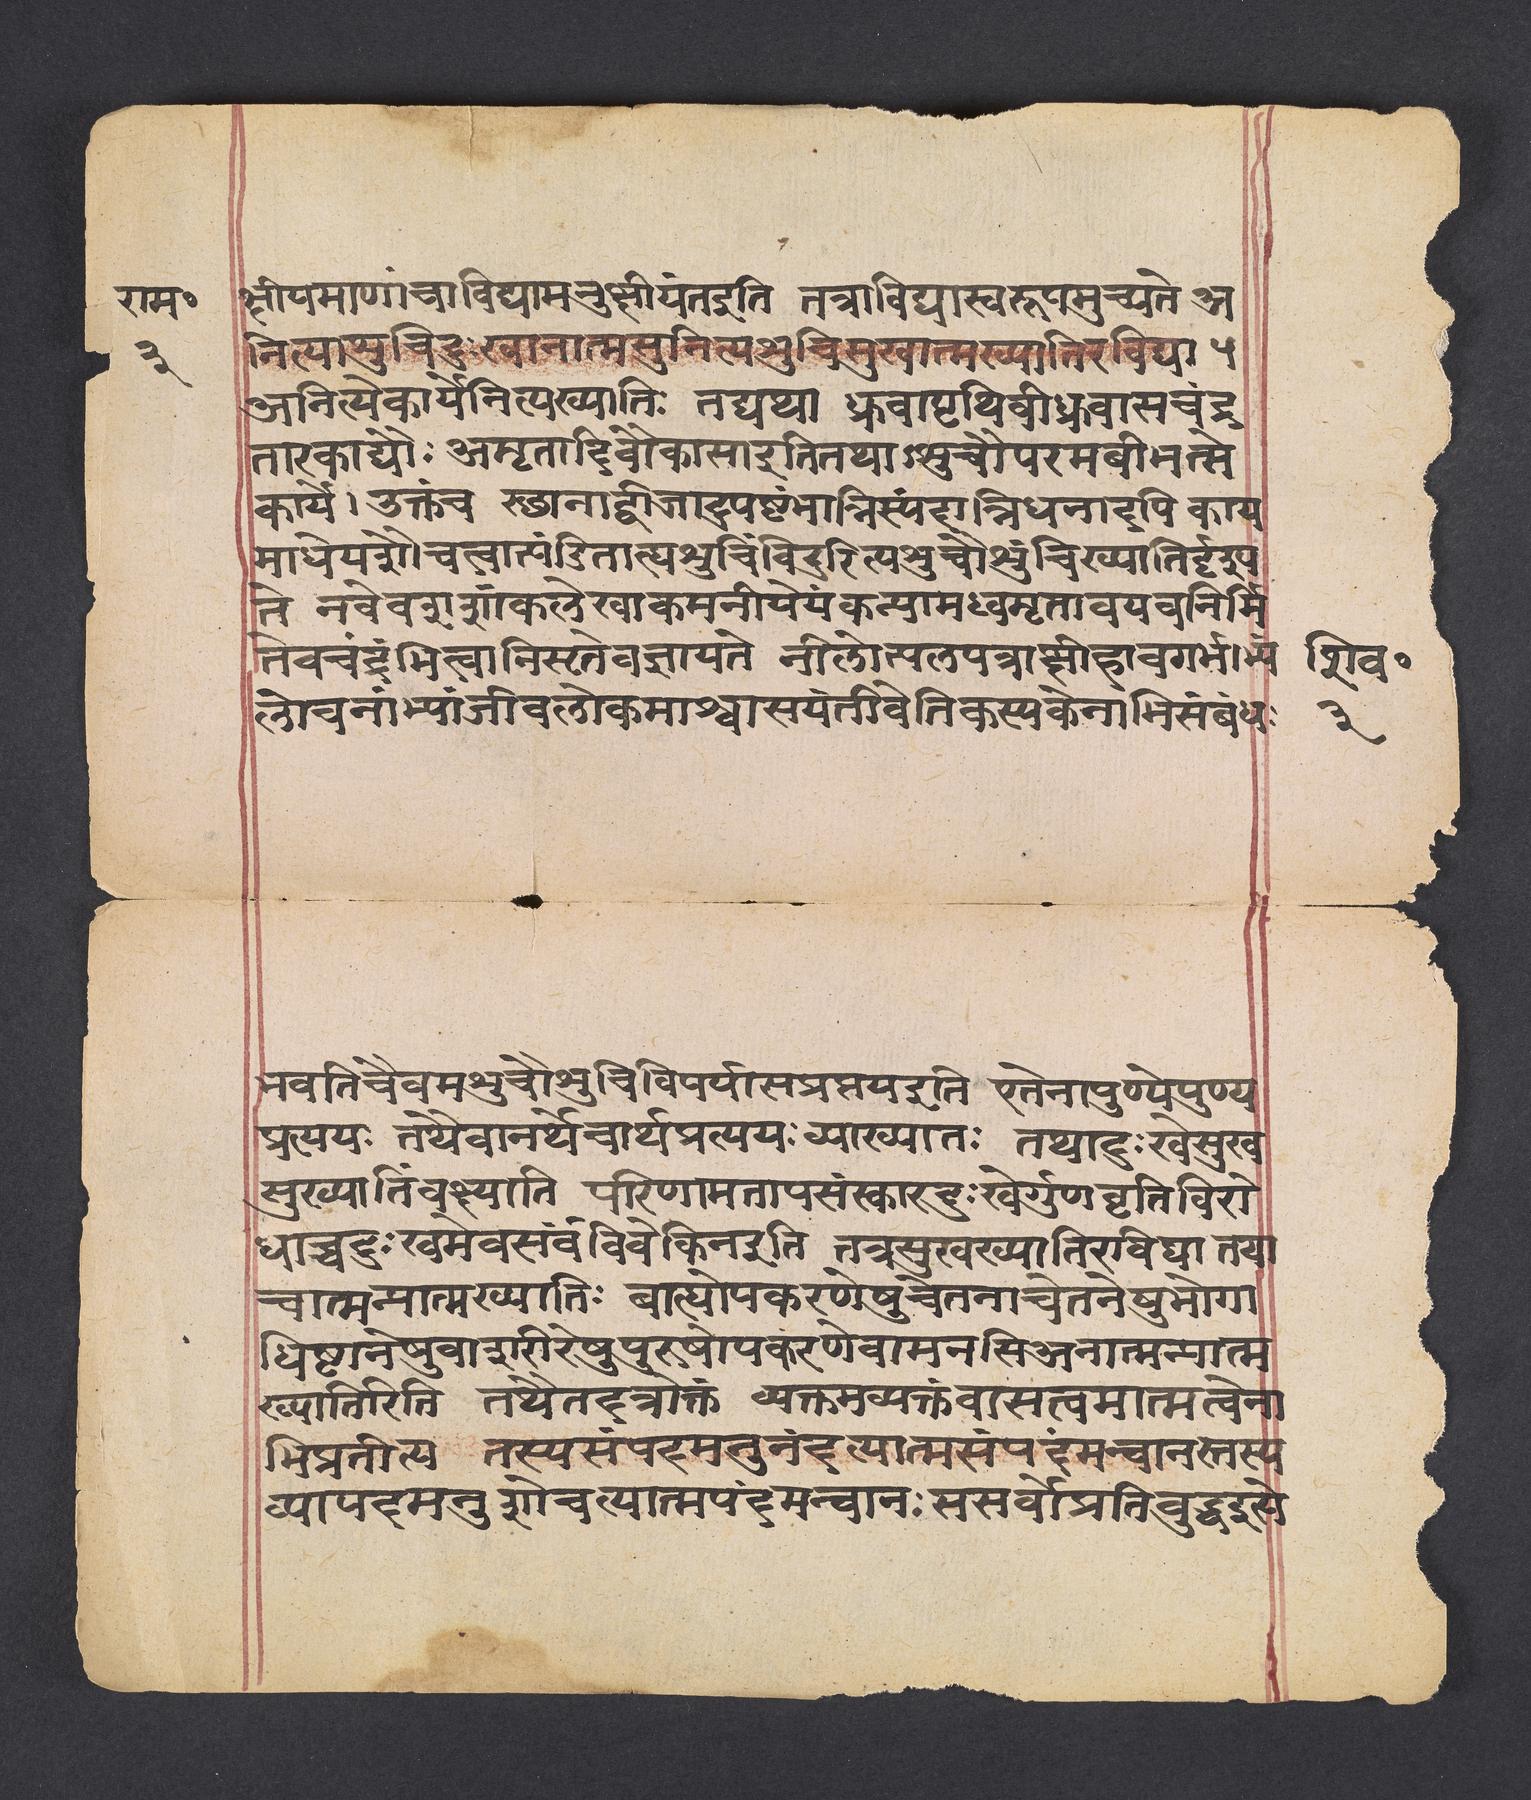 राम॰ क्षीयमाणांचाविद्यामनुक्षीयंतइति तत्राविद्यास्वरूपमुच्यते अ
३ नित्याशुचिदुःखानात्मसुनित्यशुचिसुखात्मख्यातिरविद्या ५
अनित्येकार्येनित्यख्यातिः तद्यथा ध्रुवापृथिवीध्रुवासचंद्र
तारकाद्यौः अमृतादिवौकासाइतितथाऽसुचौपरमबीभत्से
कार्ये। उक्तंच स्छानाद्वीजादुपष्टंभान्निस्पंदान्निधनादपि काय
माधेयशौचत्वात्पंडितात्यशुचिंविदुरित्यशुचौशुंचिख्यातिर्दृइप
ते नवेवशशांकलेखाकमनीयेयंकन्यामध्वमृतावयवनिर्मि
तेवचंद्रंभित्वानिस्सृतेवज्ञायते नीलोत्पलपत्राक्षीहावगर्भाभ्यं शिव॰
लोचनांभ्यांजीवलोकमाश्वासयंतीवेतिकस्यकेनाभिसंबंधः ३
भवतिचैवमशुचौशुचिविपर्यासप्रत्तयइति एतेनापुण्येपुण्य
प्रत्ययः तथैवानर्थेचार्थप्रत्ययः व्याख्यातः तथादुःखेसुख
सुख्यातिंवक्ष्याति परिणामतापसंस्कारदुःखैर्गुणवृतिविरो
धाच्चदुःखमेवसर्वंविवेकिनइति तत्रसुखख्यातिरविद्या तथा
चात्मन्यात्मख्यातिः बात्योपकरणेषुचेतनाचेतनेषुभोगा
धिष्टानेषुवाशरीरेषुपुरुषोपकरणेवामनसिअनात्मन्यात्म
ख्यातिरिति तथैतदत्रोक्तं व्यक्तमव्यक्तंवासत्वमात्मत्वेना
भिप्रतीत्य तस्यसंपदमनुनंदत्यात्मसंपदंमन्वानस्तस्य
व्यापदमनुशोचत्यात्मपंदमन्वानः ससर्वोप्रतिबुद्धइत्ये